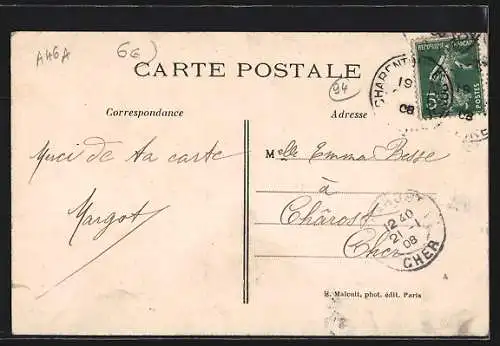 A46A
66
CARTE POSTALE
94
Correspondance
Adresse
RÉPUBLIQUE FRANÇAISE
POSTES
CHARENTON
19
08
Merci de ta carte
Margot
Melle Emma Besse
à
Chârost
Cher
CHAROST
12 40
21 - 1
08
CHER
E. Malcuit, phot. édit. Paris